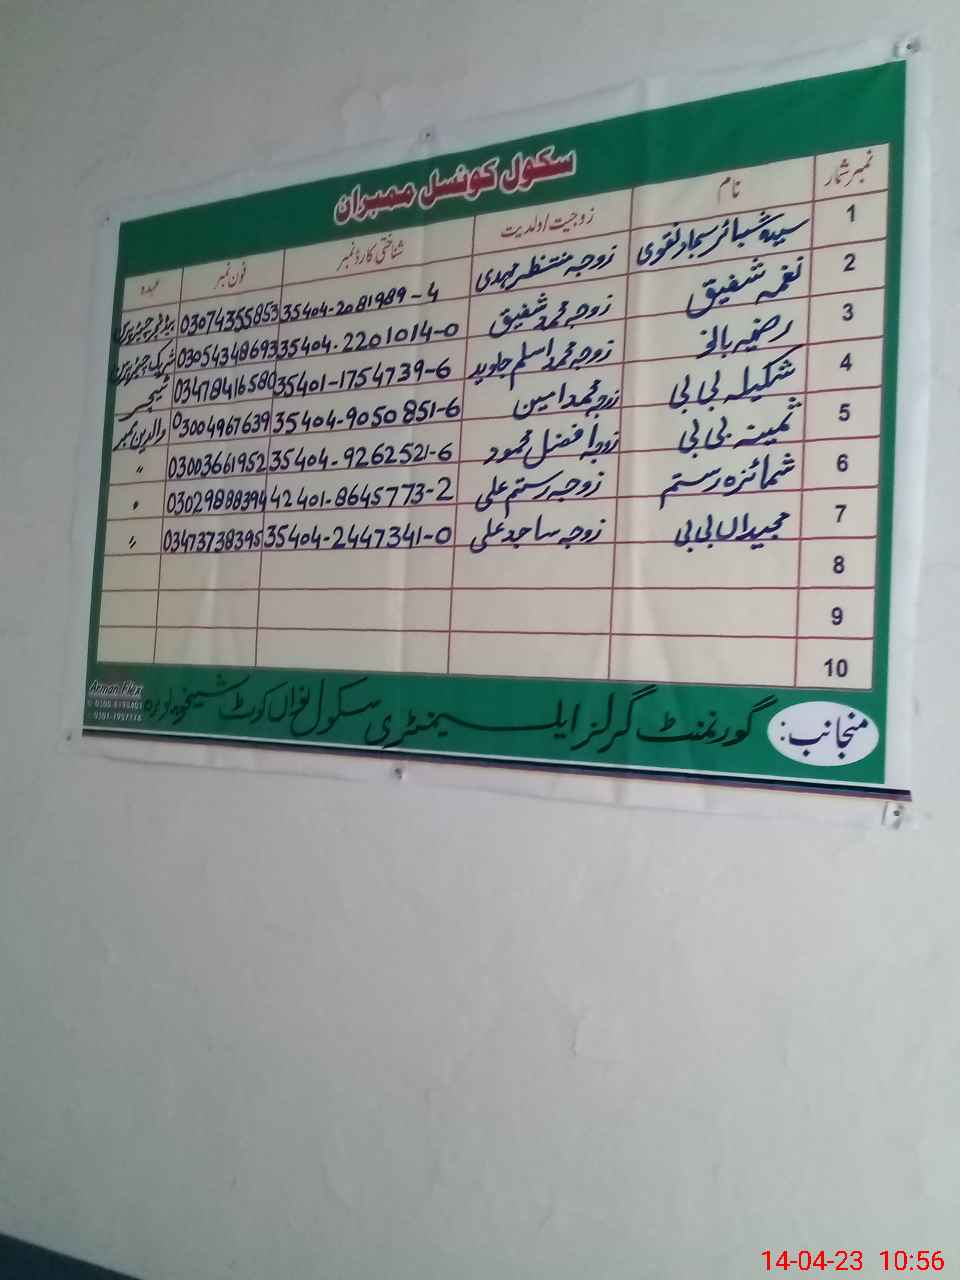 سکول کونسل ممبران
نمبر شمار نام زوجیت/ولدیت شناختی کارڈ نمبر فون نمبر عہدہ
1 سیدہ شبائر سجاد نقوی زوجہ منتظر مہدی 35404-2081989-4 03074355853 ہیڈ ٹیچر چیئرپرسن
2 نغمہ شفیق زوجہ محمد شفیق 35404-2201014-0 03054348693 شریک چیئرپرسن
3 رضیہ بانو زوجہ محمد اسلم جاوید 35401-1754739-6 03478416580 ٹیچر
4 شکیلہ بی بی زوجہ محمد امین 35404-9050851-6 03004967639 والدین ممبر
5 ثمینہ بی بی زوجہ افضل محمود 35404-9262521-6 03003661952 〃
6 شمائزہ رستم زوجہ رستم علی 42401-8645773-2 03029888394 〃
7 مجیداں بی بی زوجہ ساجد علی 35404-2447341-0 03473738395 〃
8
9
10
منجانب: گورنمنٹ گرلز ایلیمنٹری سکول نواں کوٹ شیخوپورہ
Arman Flex